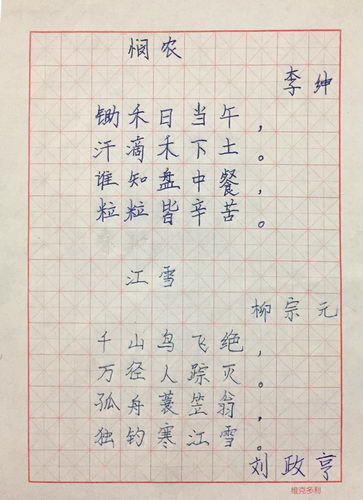 悯农
李绅
锄禾日当午，
汗滴禾下土。
谁知盘中餐，
粒粒皆辛苦。
江雪
柳宗元
千山鸟飞绝，
万径人踪灭。
孤舟蓑笠翁，
独钓寒江雪。
刘政亨
维克多利